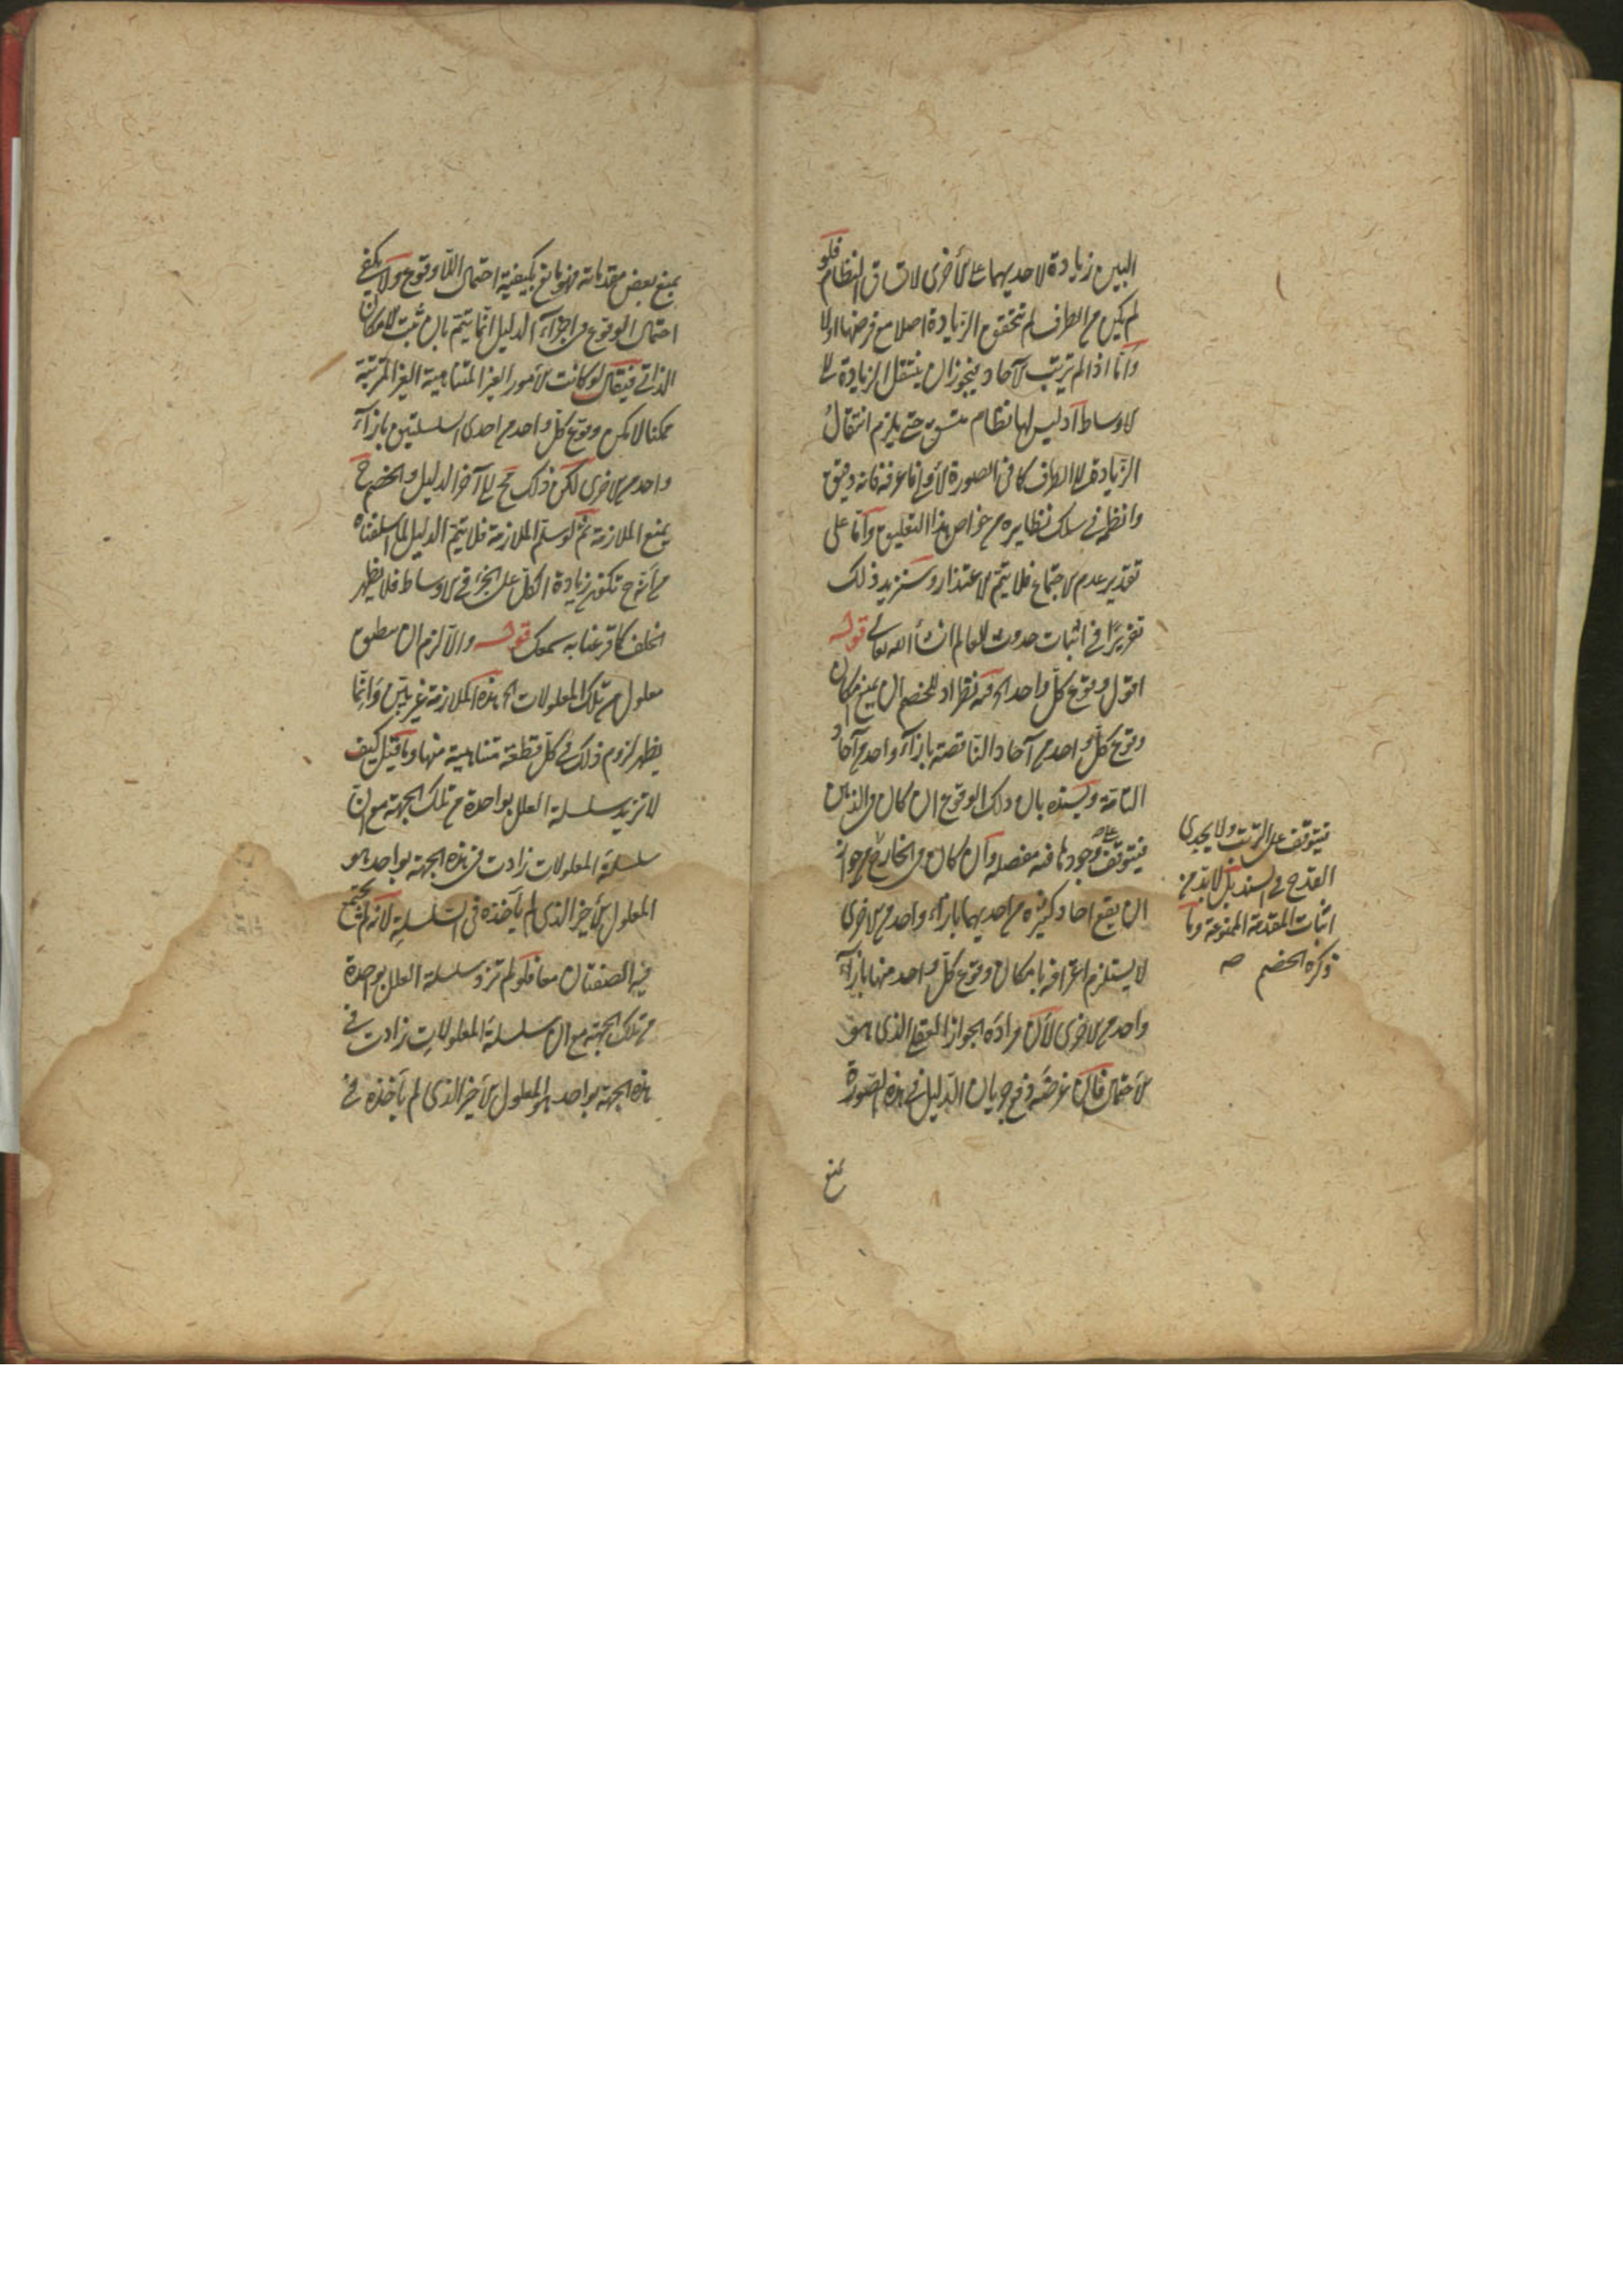 البين زيادة لاحديهما على الأخرى لاتساق النظام فلو
لم يكن من الطرف لم تتحقق الزيادة اصلا مع فرضها اولا
وأما اذا لم يترتب الآحاد فيجوز ان ينتقل الزيادة الى
الاوساط اذ ليس لها نظام متسق حتى يلزم انتقال
الزيادة الى الطرف كما في الصورة الأولى فاعرفه فانه دقيق
وانظمه في سلك نظايره من خواص هذا التعليق وأما على
تقدير عدم الاجتماع فلا يتم الاعتذار وسنزيد ذلك
تقريرًا في اثبات حدوث العالم ان شاء الله تعالى قوله
اقول وقوع كل واحد الخ فيه نظر اذ للخصم ان يمنع امكان
وقوع كل واحد من آحاد الناقصة بازاء واحد من آحاد
التامة ويسنده بان ذلك الوقوع ان كان في الذهن
فيتوقف على وجودها فيه مفصلة وان كان في الخارج فجواز
ان يقع احاد كثيرة من احديهما بازاء واحد من الاخرى
لا يستلزم اعترافه بامكان وقوع كل واحد منها بازاء
واحد من الاخرى لأن مراده الجواز العقلي الذي هو
الأحتمال فان غرضه دفع جريان الدليل في هذه الصورة
يمنع
فيتوقف على الترتب ولا يجدى
القدح في السند بل لابد من
اثبات المقدمة الممنوعة وما
ذكره الخصم صه
بمنع بعض مقدماته فهو مانع يكفيه احتمال اللاوقوع ولا يكفى
احتمال الوقوع في اجراء الدليل انما يتم بان يثبت الامكان
الذاتي فيقال لو كانت الأمور الغير المتناهية الغير المترتبة
ممكنا لامكن وقوع كل واحد من احدى السلسلتين بازاء
واحد من الاخرى لكن ذلك مح الى آخر الدليل والخصم ح
يمنع الملازمة ثم لو سلم الملازمة فلا يتم الدليل لما اسلفناه
من أنه ح تكون زيادة الكل على الجزء في الاوساط فلا يظهر
الخلف كما قرعنا به سمعك قوله والا لزم ان ينطبق
معلول من تلك المعلولات الخ هذه الملازمة غير بين وإنما
يظهر لزوم ذلك في كل قطعة متناهية منها وما قيل كيف
لا تزيد سلسلة العلل بواحدة من تلك الجهة مع ان
سلسلة المعلولات زادت في هذه الجهة بواحد هو
المعلول الأخير الذي لم يأخذه في السلسلة لأنه لم يجتمع
فيه الصفتان معا فلو لم تزد سلسلة العلل بواحدة
من تلك الجهة مع ان سلسلة المعلولات زادت في
هذه الجهة بواحد هو المعلول الأخير الذي لم يأخذه في